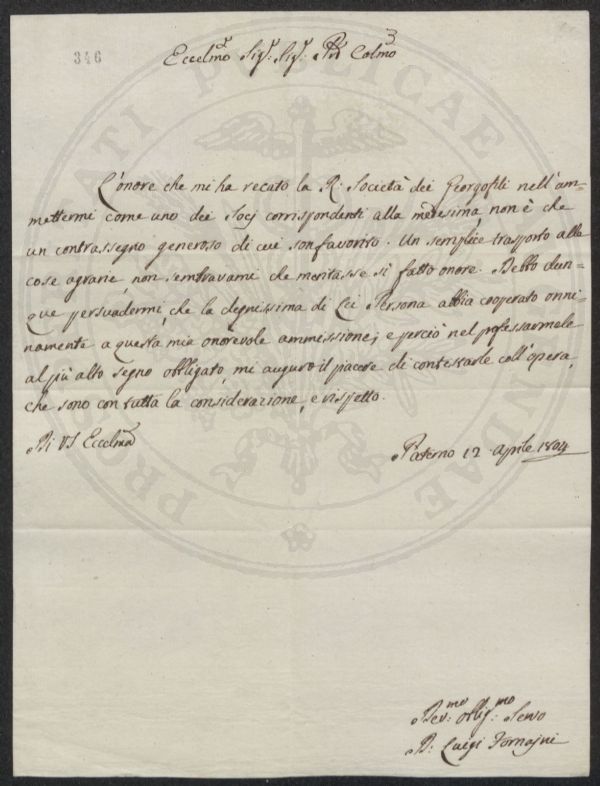 346
Eccelmo Sigr: Sigr: Pn Colmo
L'onore che mi ha recato la R: Società dei Georgofili nell'am-
mettermi come uno dei Socj corrispondenti alla medesima, non è che
un contrassegno generoso di cui son favorito. Un semplice trasporto alle
cose agrarie, non sembravami che meritasse sì fatto onore. Debbo dun-
que persuadermi, che la degnissima di Lei Persona abbia cooperato onni-
namente a questa mia onorevole ammissione; e perciò nel professarmele
al più alto segno obbligato, mi auguro il piacere di contestarle coll'opera,
che sono con tutta la considerazione, e rispetto.
Di VS Eccelma
Paterno 12 Aprile 1804
Devmo: Obbligmo: Servo
D: Luigi Fornajni
PRO PUBLICAE